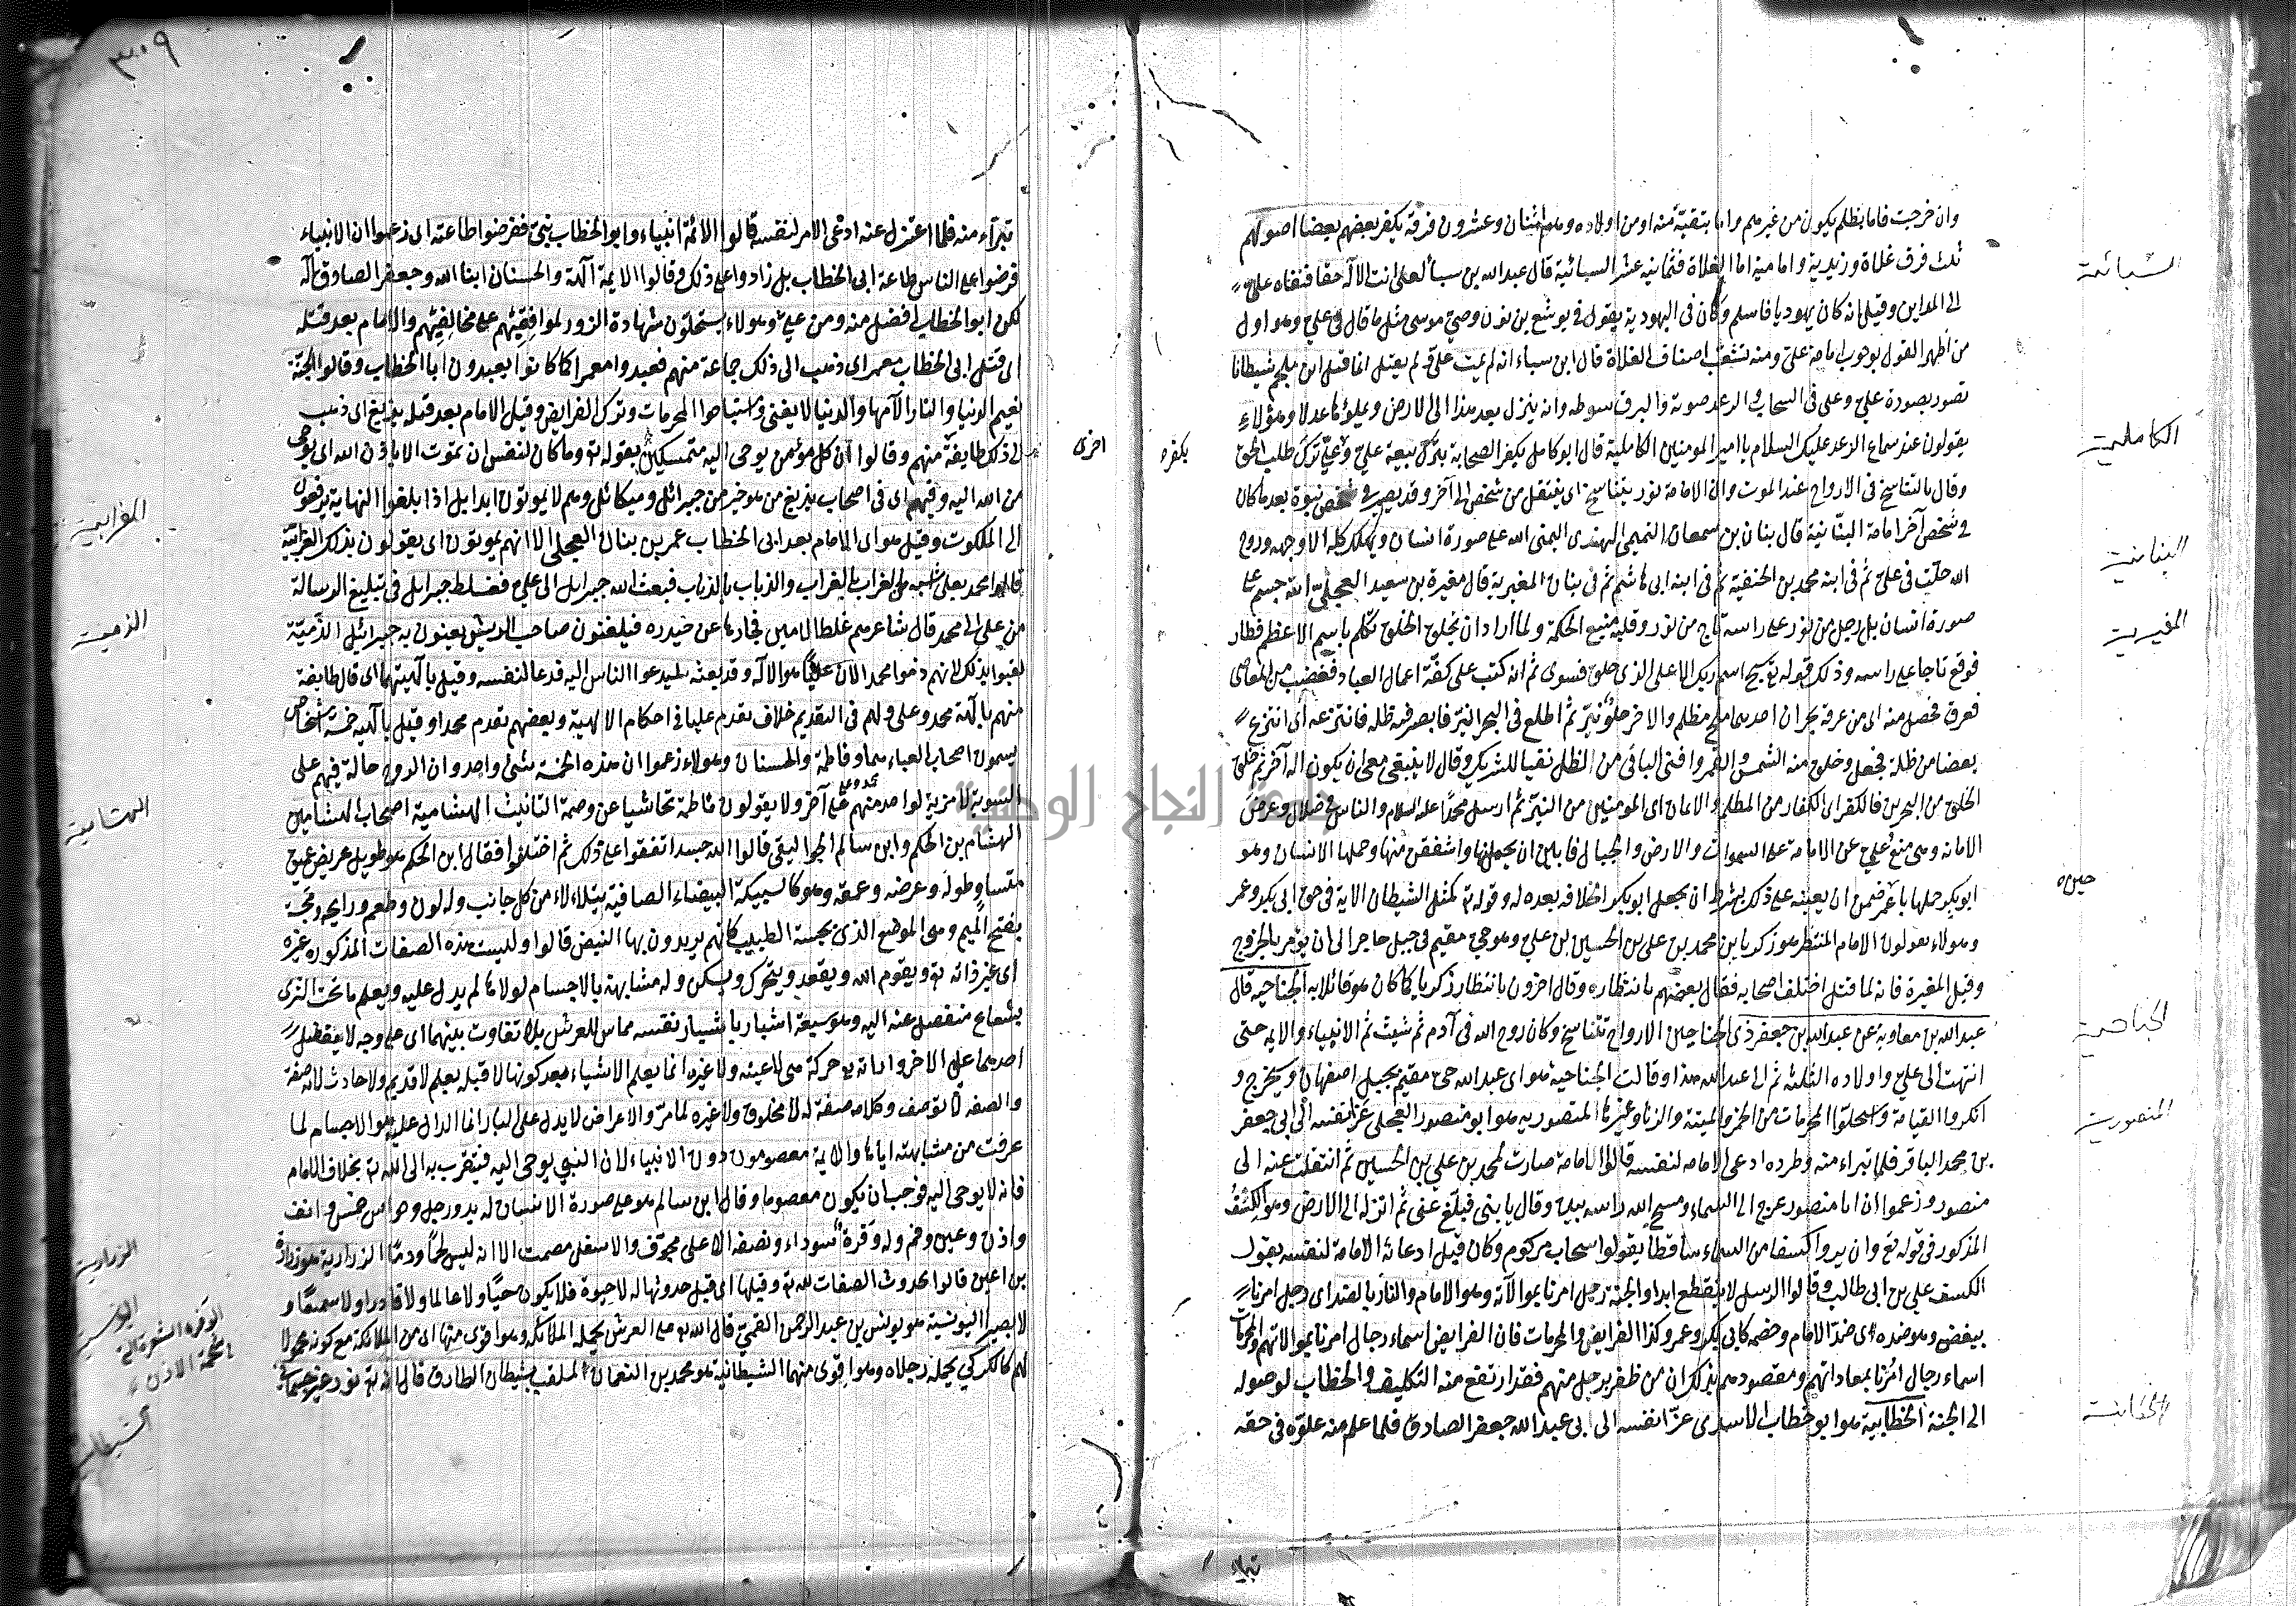 وان خرجت فاما بظلم يكون من غيرهم واما بتقية منه او من اولاده وهم اثنان وعشرون فرقة يكفر بعضهم بعضا اصولهم
ثلث فرق غلاة وزيدية وامامية اما الغلاة فثمانية عشر السبائية قال عبد الله بن سبأ لعلي انت الاله حقا فنفاه علي
الى المداين وقيل انه كان يهوديا فاسلم وكان في اليهودية يقول في يوشع بن نون وصي موسى مثل ما قال في علي وهو اول
من اظهر القول بوجوب امامة علي ومنه تشعب اصناف الغلاة قال ابن سباء انه لم يمت علي ولم يقتل انما قتل ابن ملجم شيطانا
تصور بصورة علي وعلي في السحاب والرعد صوته والبرق سوطه وانه ينزل بعد هذا الى الارض ويملؤها عدلا وهؤلاء
يقولون عند سماع الرعد عليك السلام يا امير المومنين الكاملية قال ابو كامل يكفر الصحابة بترك بيعة علي وعلي بترك طلب الحق
وقال بالتناسخ في الارواح عند الموت وان الامامة نور يتناسخ اي ينتقل من شخص الى آخر وقد يصير في شخص نبوة بعد ما كان
في شخص آخر امامة البنانية قال بنان بن سمعان التميمي النهدي اليمني الله على صورة انسان ويهلك كله الا وجهه وروح
الله حلت في علي ثم في ابنه محمد بن الحنفية ثم في ابنه ابي هاشم ثم في بنان المغيرية قال مغيرة بن سعيد العجلي الله جسم على
صورة انسان بل رجل من نور على راسه تاج من نور وقلبه منبع الحكمة ولما اراد ان يخلق الخلق تكلم باسم الاعظم فطار
فوقع تاجا على راسه وذلك قوله تع سبح اسم ربك الاعلى الذي خلق فسوى ثم انه كتب على كفه اعمال العباد فغضب من المعاصي
فعرق فحصل منه اي من عرقه بحران احدهما ملح مظلم والاخر حلو نير ثم اطلع في البحر النير فابصر فيه ظله فانتزعه اي انتزع
بعضا من ظله فجعل وخلق منه الشمس والقمر وافنى الباقي من الظل نفيا للشريك وقال لا ينبغي معي ان يكون اله آخر ثم خلق
الخلق من البحرين فالكفر اي الكفار من المظلم والايمان اي المومنين من النير ثم ارسل محمدا عليه السلام والناس في ضلال وعرض
الامانة وهي منع علي عن الامامة على السموات والارض والجبال فابين ان يحملنها واشفقن منها وحملها الانسان وهو
ابو بكر حملها بامر عمر ضمن ان يعينه على ذلك بشرط ان يجعل ابو بكر الخلافة بعده له وقوله تع كمثل الشيطان الاية في حق ابي بكر وعمر
وهولاء يقولون الامام المنتظر هو زكريا بن محمد بن علي بن الحسين بن علي وهو حي مقيم في جبل حاجر الى ان يؤمر بالخروج
وقتل المغيرة فانه لما قتل اختلف اصحابه فقال بعضهم بانتظاره وقال اخرون بانتظار زكريا كما كان هو قائلا به الجناحية قال
عبد الله بن معاوية عن عبد الله بن جعفر ذي الجناحين الارواح تتناسخ وكان روح الله في آدم ثم شيث ثم الانبياء والايمة حتى
انتهت الى علي واولاده الثلثة ثم الى عبد الله هذا وقالت الجناحية هو اي عبد الله حي مقيم بجبل اصفهان ويخرج و
انكروا القيامة واستحلوا المحرمات من الخمر والميتة والزنا وغيرها المنصورية هو ابو منصور العجلي عزا نفسه الى ابي جعفر
بن محمد الباقر فلما تبراء منه وطرده ادعى الامامة لنفسه قالوا الامامة صارت لمحمد بن علي بن الحسين ثم انتقلت عنه الى
منصور وزعموا ان ابا منصور عرج الى السماء ومسح الله راسه بيده وقال يا بني فبلغ عني ثم انزله الى الارض وهو الكسف
المذكور في قوله تع وان يروا كسفا من السماء ساقطا يقولوا سحاب مركوم وكان قبل ادعائه الامامة لنفسه يقول
الكسف علي بن ابي طالب وقالوا الرسل لا ينقطع ابدا والجنة رجل امرنا بموالاته وهو الامام والنار بالضد اي رجل امرنا
ببغضه وهو ضده اي ضد الامام وخصمه كابي بكر وعمر وكذا الفرايض والمحرمات فان الفرايض اسماء رجال امرنا بموالاتهم والمحرمات
اسماء رجال امرنا بمعاداتهم ومقصودهم بذلك ان من ظفر برجل منهم فقد ارتفع منه التكليف والخطاب لوصوله
الى الجنة الخطابية هو ابو خطاب الاسدي عزا نفسه الى ابي عبد الله جعفر الصادق فلما علم منه غلوه في حقه
السبائية
الكاملية
البنانية
المغيرية
الجناحية
المنصورية
الخطابية
يكفره
تبراء
٣٠٩
تبرآء منه فلما اعتزل عنه ادعى الامر لنفسه قالوا الائمة انبياء وابو الخطاب نبي ففرضوا طاعته اي زعموا ان الانبياء
فرضوا على الناس طاعة ابي الخطاب بل زادوا على ذلك وقالوا الايمة آلهة والحسنان ابنا الله وجعفر الصادق آله
لكن ابو الخطاب افضل منه ومن علي وهولاء يستحلون شهادة الزور لموافقيهم على مخالفيهم والامام بعد قتله
اي قتل ابي الخطاب معمر اي ذهب الى ذلك جماعة منهم فعبدوا معمرا كما كانوا يعبدون ابا الخطاب وقالوا الجنة
نعيم الدنيا والنار آلامها والدنيا لا يفنى واستباحوا المحرمات وترك الفرايض وقيل الامام بعد قتله بزيغ اي ذهب
الى ذلك طايفة منهم وقالوا ان كل مؤمن يوحى اليه متمسكين بقوله تع وما كان لنفس ان تموت الا باذن الله اي يوحى
من الله اليه وفيهم اي في اصحاب بزيغ من هو خير من جبرائل وميكائل وهم لا يموتون ابدا بل اذا بلغوا النهاية يرفعون
الى الملكوت وقيل هو اي الامام بعد ابي الخطاب عمر بن بنان العجلي الا انهم يموتون اي يقولون بذلك الغرابية
قالوا محمد بعلي اشبه من الغراب بالغراب والذباب بالذباب فبعث الله جبرايل الى علي فغلط جبرايل في تبليغ الرسالة
من علي الى محمد قال شاعرهم غلط الامين فجازها عن حيدره فيلعنون صاحب الريش يعنون به جبرائل الذمية
لقبوا بذلك لانهم ذموا محمدا لان عليا هو الاله وقد بعثه ليدعوا الناس اليه فدعا لنفسه وقيل بالهيتهما اي قال طايفة
منهم بآلهة محمد وعلي ولهم في التقديم خلاف بقدم عليا في احكام الالهية وبعضهم يقدم محمدا وقيل بآلهية خمسة اشخاص
يسمون اصحاب العباء هما وفاطمة والحسنان وهولاء زعموا ان هذه الخمسة شئ واحد وان الروح حالة فيهم على
السوية لا مزية لواحد منهم على آخر ولا يقولون فاطمة تحاشيا عن وصمة التانيث الهشامية اصحاب الهشامين
الهشام بن الحكم وابن سالم الجواليقي قالوا الله جسد اتفقوا على ذلك ثم اختلفوا فقال ابن الحكم هو طويل عريض عميق
متساو طوله وعرضه وعمقه وهو كالسبيكة البيضاء الصافية يتلاءلاء من كل جانب وله لون وطعم ورايحة ومجسة
بفتح الميم وهي الموضع الذي يجسه الطبيب كانهم يريدون بها النبض قالوا وليست هذه الصفات المذكورة غيره
اي غير ذاته تع ويقوم الله ويقعد ويتحرك ويسكن وله مشابهة بالاجسام لولاها لم يدل عليه ويعلم ما تحت الثرى
بشعاع منفصل عنه اليه وهو سبعة اشبار باشبار نفسه مماس للعرش بلا تفاوت بينهما اي على وجه لا يفضل
احدهما على الاخر وارادته تع حركة هي لا عينه ولا غيره انما يعلم الاشياء بعد كونها لا قبله بعلم لا قديم ولا حادث لانه صفة
والصفة لا توصف وكلامه صفة له لا مخلوق ولا غيره لما مر والاعراض لا يدل على البار انما الدال عليه هو الاجسام لما
عرفت من مشابهته اياها والايمة معصومون دون الانبياء لان النبي يوحى اليه فيتقرب به الى الله تع بخلاف الامام
فانه لا يوحى اليه فوجب ان يكون معصوما وقال ابن سالم هو على صورة الانسان له يد ورجل وحواس خمس وانف
واذن وعين وفم وله وفرة سوداء ونصفه الاعلى مجوف والاسفل مصمت الا انه ليس لحما ودما الزرارية هو زرارة
بن اعين قالوا بحدوث الصفات لله تع وقبلها اي قبل حدوثها له لا حيوة فلا يكون حيا ولا عالما ولا قادرا ولا سميعا و
لا بصيرا اليونسية هو يونس بن عبد الرحمن القمي قال الله تع على العرش يحمله الملائكة وهو اقوى منها اي من الملائكة مع كونه محمولا
لهم كالكركي يحمله رجلاه وهو اقوى منهما الشيطانية هو محمد بن النعمان الملقب بشيطان الطارق قال انه تع نور غير جسماني
اخرى
الغرابية
الذمية
الهشامية
الزرارية
اليونسية
الوفره الشعرة الى
شحمة الاذن
الشيطانية
جامعة النجاح الوطنية